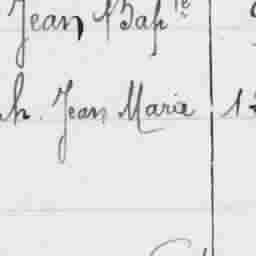 Jean Bap^te
h. Jean Marie 1